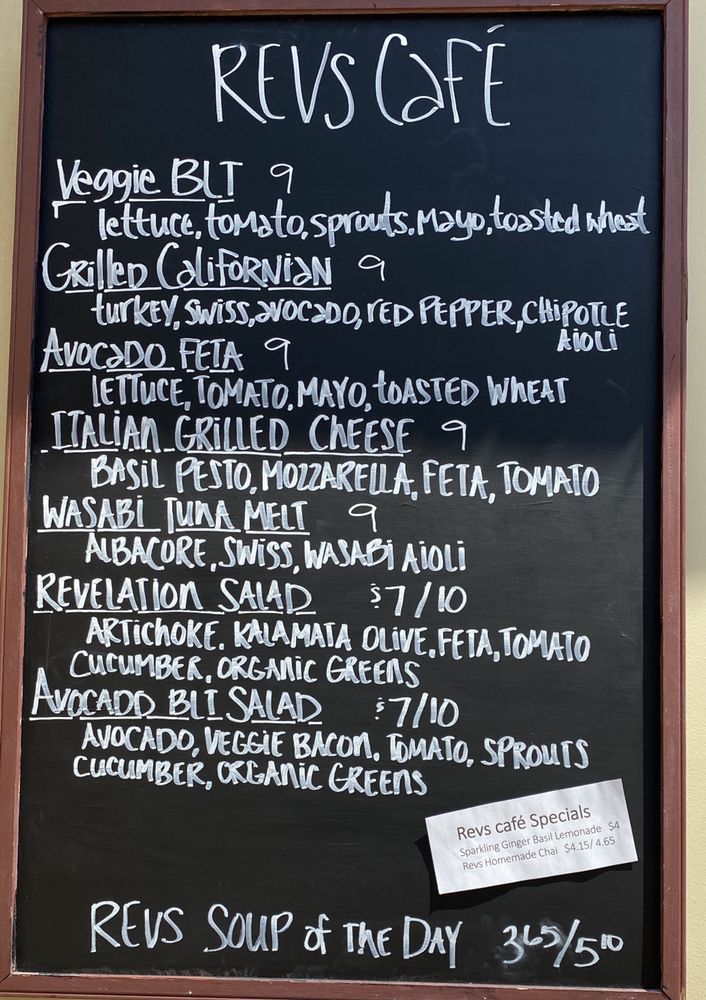 REVS CaFÉ
Veggie BLT 9
lettuce, tomato, sprouts, Mayo, toasted wheat
GRilled CaliFORNian 9
turkey, swiss, avocado, RED PEPPER, CHIPOTLE
AIOLI
AVOCADO FETA 9
LETTUCE, TOMATO, MAYO, tOASTED WHEAT
ITALIAN GRILLED CHEESE 9
BASIL PESTO, MOZZARELLA, FETA, TOMATO
WASABI TUNA MELT 9
ALBACORE, SWISS, WASABI AIOLI
REVELATION SALAD $7/10
ARTICHOKE, KALAMATA OLIVE, FETA, TOMATO
CUCUMBER, ORGANIC GREENS
AVOCADO BLT SALAD $7/10
AVOCADO, VEGGIE BACON, TOMATO, SPROUTS
CUCUMBER, ORGANIC GREENS
Revs café Specials
Sparkling Ginger Basil Lemonade $4
Revs Homemade Chai $4.15/ 4.65
REVS SOUP of THE DAY 365/510